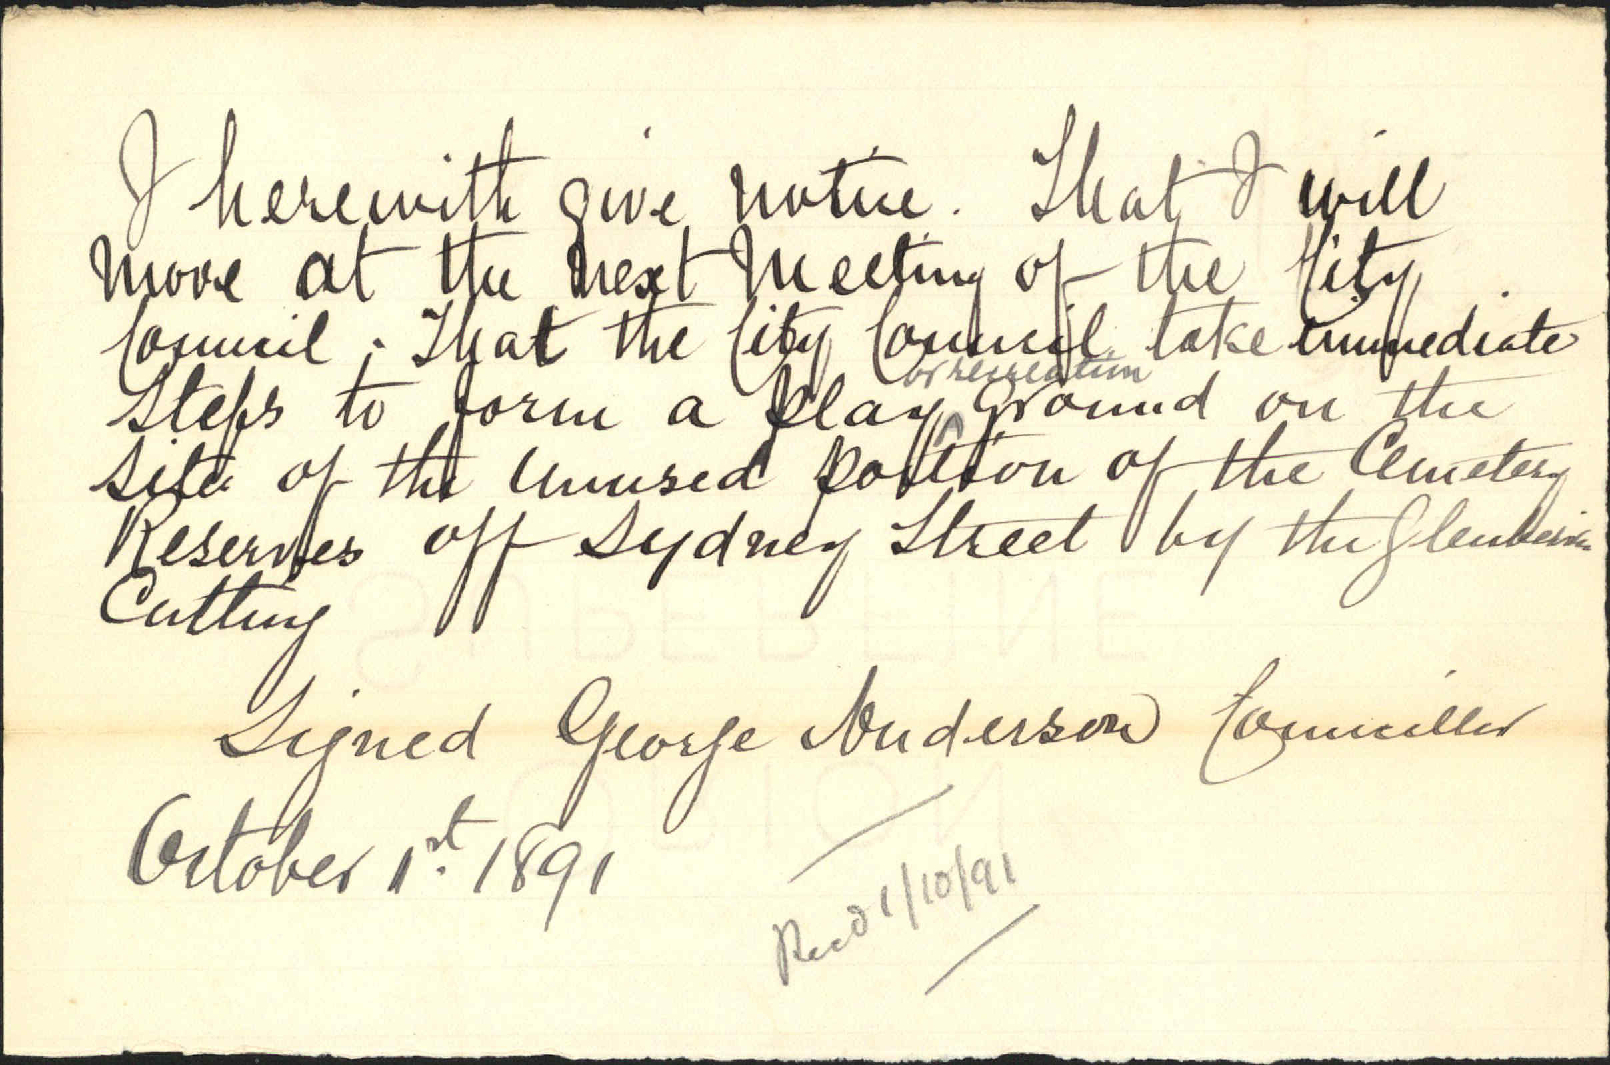 I herewith give notice. That I will
move at the next Meeting of the City
Council. That the City Council take immediate
or recreation
Steps to form a play ground on the
site of the unused portion of the Cemetery
Reserves off Sydney Street by the Glenbervie
Cutting
Signed George Anderson Councillor
October 1st. 1891
Recd 1/10/91
SUPERFINE
ORION